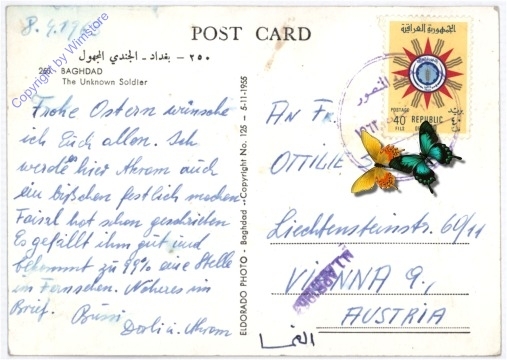 8. 4. 19
POST CARD
٢٥٠ - بغداد - الجندي المجهول
250 BAGHDAD
The Unknown Soldier
Frohe Ostern wünsche
ich Euch allen. Ich
werde hier Akram auch
ein bißchen festlich machen
Faisal hat schon geschrieben
Es gefällt ihm gut und
bekommt zu 99% eine Stelle
im Fernsehen. Näheres im
Brief. Bussi
Dorli u. Akram
ELDORADO PHOTO - Baghdad - Copyright No. 125 - 5-11-1955
الجمهورية العراقية
POSTAGE
40 REPUBLIC
FILS
AN FR.
OTTILIE
Liechtensteinstr. 69/11
VIENNA 9.,
AUSTRIA
النمسا
Copyright by WimStore